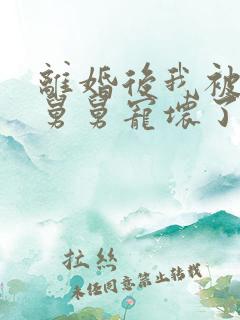 離婚後我被
舅舅寵壞了
拉絲
未經同意禁止轉載